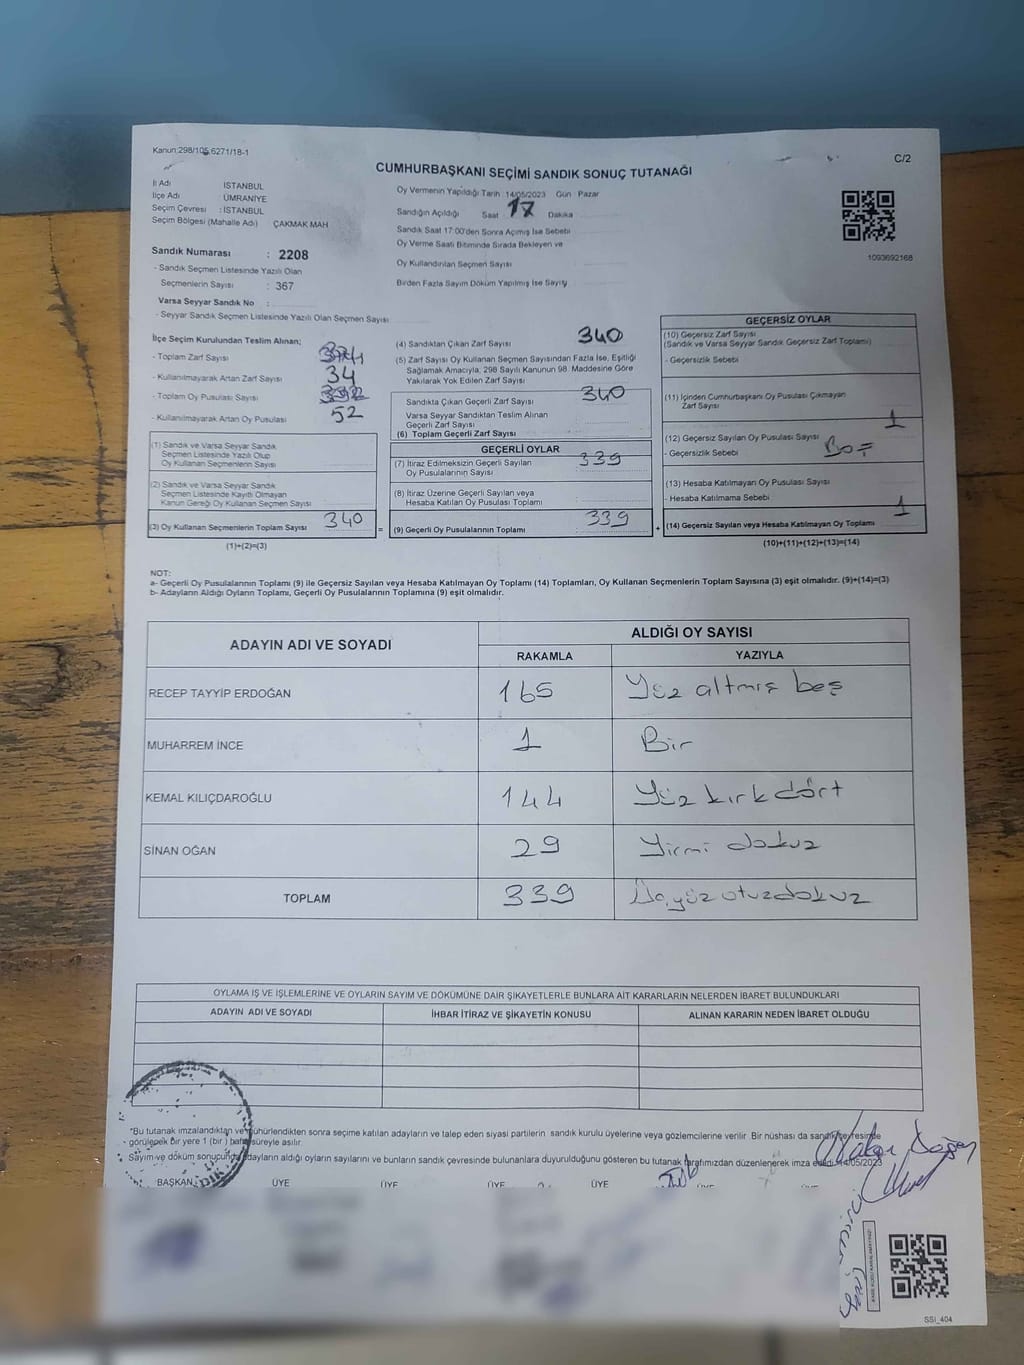 Kanun:298/105,6271/18-1
C/2
CUMHURBAŞKANI SEÇİMİ SANDIK SONUÇ TUTANAĞI
İl Adı : İSTANBUL
İlçe Adı : ÜMRANİYE
Seçim Çevresi : İSTANBUL
Seçim Bölgesi (Mahalle Adı) ÇAKMAK MAH
Sandık Numarası : 2208
- Sandık Seçmen Listesinde Yazılı Olan
Seçmenlerin Sayısı : 367
Varsa Seyyar Sandık No :
- Seyyar Sandık Seçmen Listesinde Yazılı Olan Seçmen Sayısı
Oy Vermenin Yapıldığı Tarih 14/05/2023 Gün Pazar
Sandığın Açıldığı Saat 17 Dakika
Sandık Saat 17:00'den Sonra Açılmış İse Sebebi
Oy Verme Saati Bitiminde Sırada Bekleyen ve
Oy Kullandırılan Seçmen Sayısı
Birden Fazla Sayım Döküm Yapılmış İse Sayısı
1093692168
İlçe Seçim Kurulundan Teslim Alınan;
- Toplam Zarf Sayısı
- Kullanılmayarak Artan Zarf Sayısı 34
- Toplam Oy Pusulası Sayısı
- Kullanılmayarak Artan Oy Pusulası 52
(1) Sandık ve Varsa Seyyar Sandık
Seçmen Listesinde Yazılı Olup
Oy Kullanan Seçmenlerin Sayısı
(2) Sandık ve Varsa Seyyar Sandık
Seçmen Listesinde Kayıtlı Olmayan
Kanun Gereği Oy Kullanan Seçmen Sayısı
(3) Oy Kullanan Seçmenlerin Toplam Sayısı 340 =
(1)+(2)=(3)
(4) Sandıktan Çıkan Zarf Sayısı 340
(5) Zarf Sayısı Oy Kullanan Seçmen Sayısından Fazla İse, Eşitliği
Sağlamak Amacıyla, 298 Sayılı Kanunun 98. Maddesine Göre
Yakılarak Yok Edilen Zarf Sayısı
Sandıkta Çıkan Geçerli Zarf Sayısı 340
Varsa Seyyar Sandıktan Teslim Alınan
Geçerli Zarf Sayısı
(6) Toplam Geçerli Zarf Sayısı
GEÇERLİ OYLAR
(7) İtiraz Edilmeksizin Geçerli Sayılan
Oy Pusulalarının Sayısı 339
(8) İtiraz Üzerine Geçerli Sayılan veya
Hesaba Katılan Oy Pusulası Toplamı
(9) Geçerli Oy Pusulalarının Toplamı 339 +
GEÇERSİZ OYLAR
(10) Geçersiz Zarf Sayısı
(Sandık ve Varsa Seyyar Sandık Geçersiz Zarf Toplamı)
- Geçersizlik Sebebi
(11) İçinden Cumhurbaşkanı Oy Pusulası Çıkmayan
Zarf Sayısı 1
(12) Geçersiz Sayılan Oy Pusulası Sayısı
- Geçersizlik Sebebi
(13) Hesaba Katılmayan Oy Pusulası Sayısı
- Hesaba Katılmama Sebebi
(14) Geçersiz Sayılan veya Hesaba Katılmayan Oy Toplamı 1
(10)+(11)+(12)+(13)=(14)
NOT:
a- Geçerli Oy Pusulalarının Toplamı (9) ile Geçersiz Sayılan veya Hesaba Katılmayan Oy Toplamı (14) Toplamları, Oy Kullanan Seçmenlerin Toplam Sayısına (3) eşit olmalıdır. (9)+(14)=(3)
b- Adayların Aldığı Oyların Toplamı, Geçerli Oy Pusulalarının Toplamına (9) eşit olmalıdır.
ADAYIN ADI VE SOYADI ALDIĞI OY SAYISI
RAKAMLA YAZIYLA
RECEP TAYYİP ERDOĞAN 165 Yüz altmış beş
MUHARREM İNCE 1 Bir
KEMAL KILIÇDAROĞLU 144 Yüz kırk dört
SİNAN OĞAN 29 Yirmi dokuz
TOPLAM 339 Üçyüz otuzdokuz
OYLAMA İŞ VE İŞLEMLERİNE VE OYLARIN SAYIM VE DÖKÜMÜNE DAİR ŞİKAYETLERLE BUNLARA AİT KARARLARIN NELERDEN İBARET BULUNDUKLARI
ADAYIN ADI VE SOYADI İHBAR İTİRAZ VE ŞİKAYETİN KONUSU ALINAN KARARIN NEDEN İBARET OLDUĞU
*Bu tutanak imzalandıktan ve mühürlendikten sonra seçime katılan adayların ve talep eden siyasi partilerin sandık kurulu üyelerine veya gözlemcilerine verilir. Bir nüshası da sandık çevresinde
görülecek bir yere 1 (bir) hafta süreyle asılır.
Sayım ve döküm sonucunda adayların aldığı oyların sayılarını ve bunların sandık çevresinde bulunanlara duyurulduğunu gösteren bu tutanak tarafımızdan düzenlenerek imza edildi. 14/05/2023
BAŞKAN ÜYE ÜYE ÜYE ÜYE
SSI_404